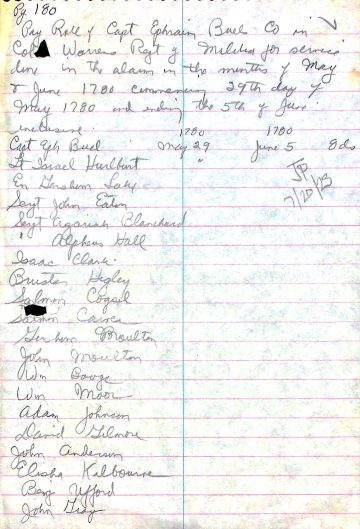 Pg 180
Pay Roll of Capt Ephraim Buels Co in
Col Warrens Regt of Militia for service
done in the alarm in the months of May
& June 1780 commencing 29th day of
May 1780 and ending the 5th of June
inclusive. 1780 1780
Capt Eph Buel May 29 June 5 8 ds
Lt Israel Hurlburt "
En Gershom Lake
Sergt John Eaton
Sergt Azariah Blanchard
" Alpheus Hall
Isaac Clark
Brustor Higley
Salmon Cogsel
Salmon
Gershom Moulton
John Moulton
Wm
Wm Moor
Adam Johnson
David Gilmore
John Anderson
Elisha Kalbourne
Benj Ufford
John Gray
JP
7/20/23